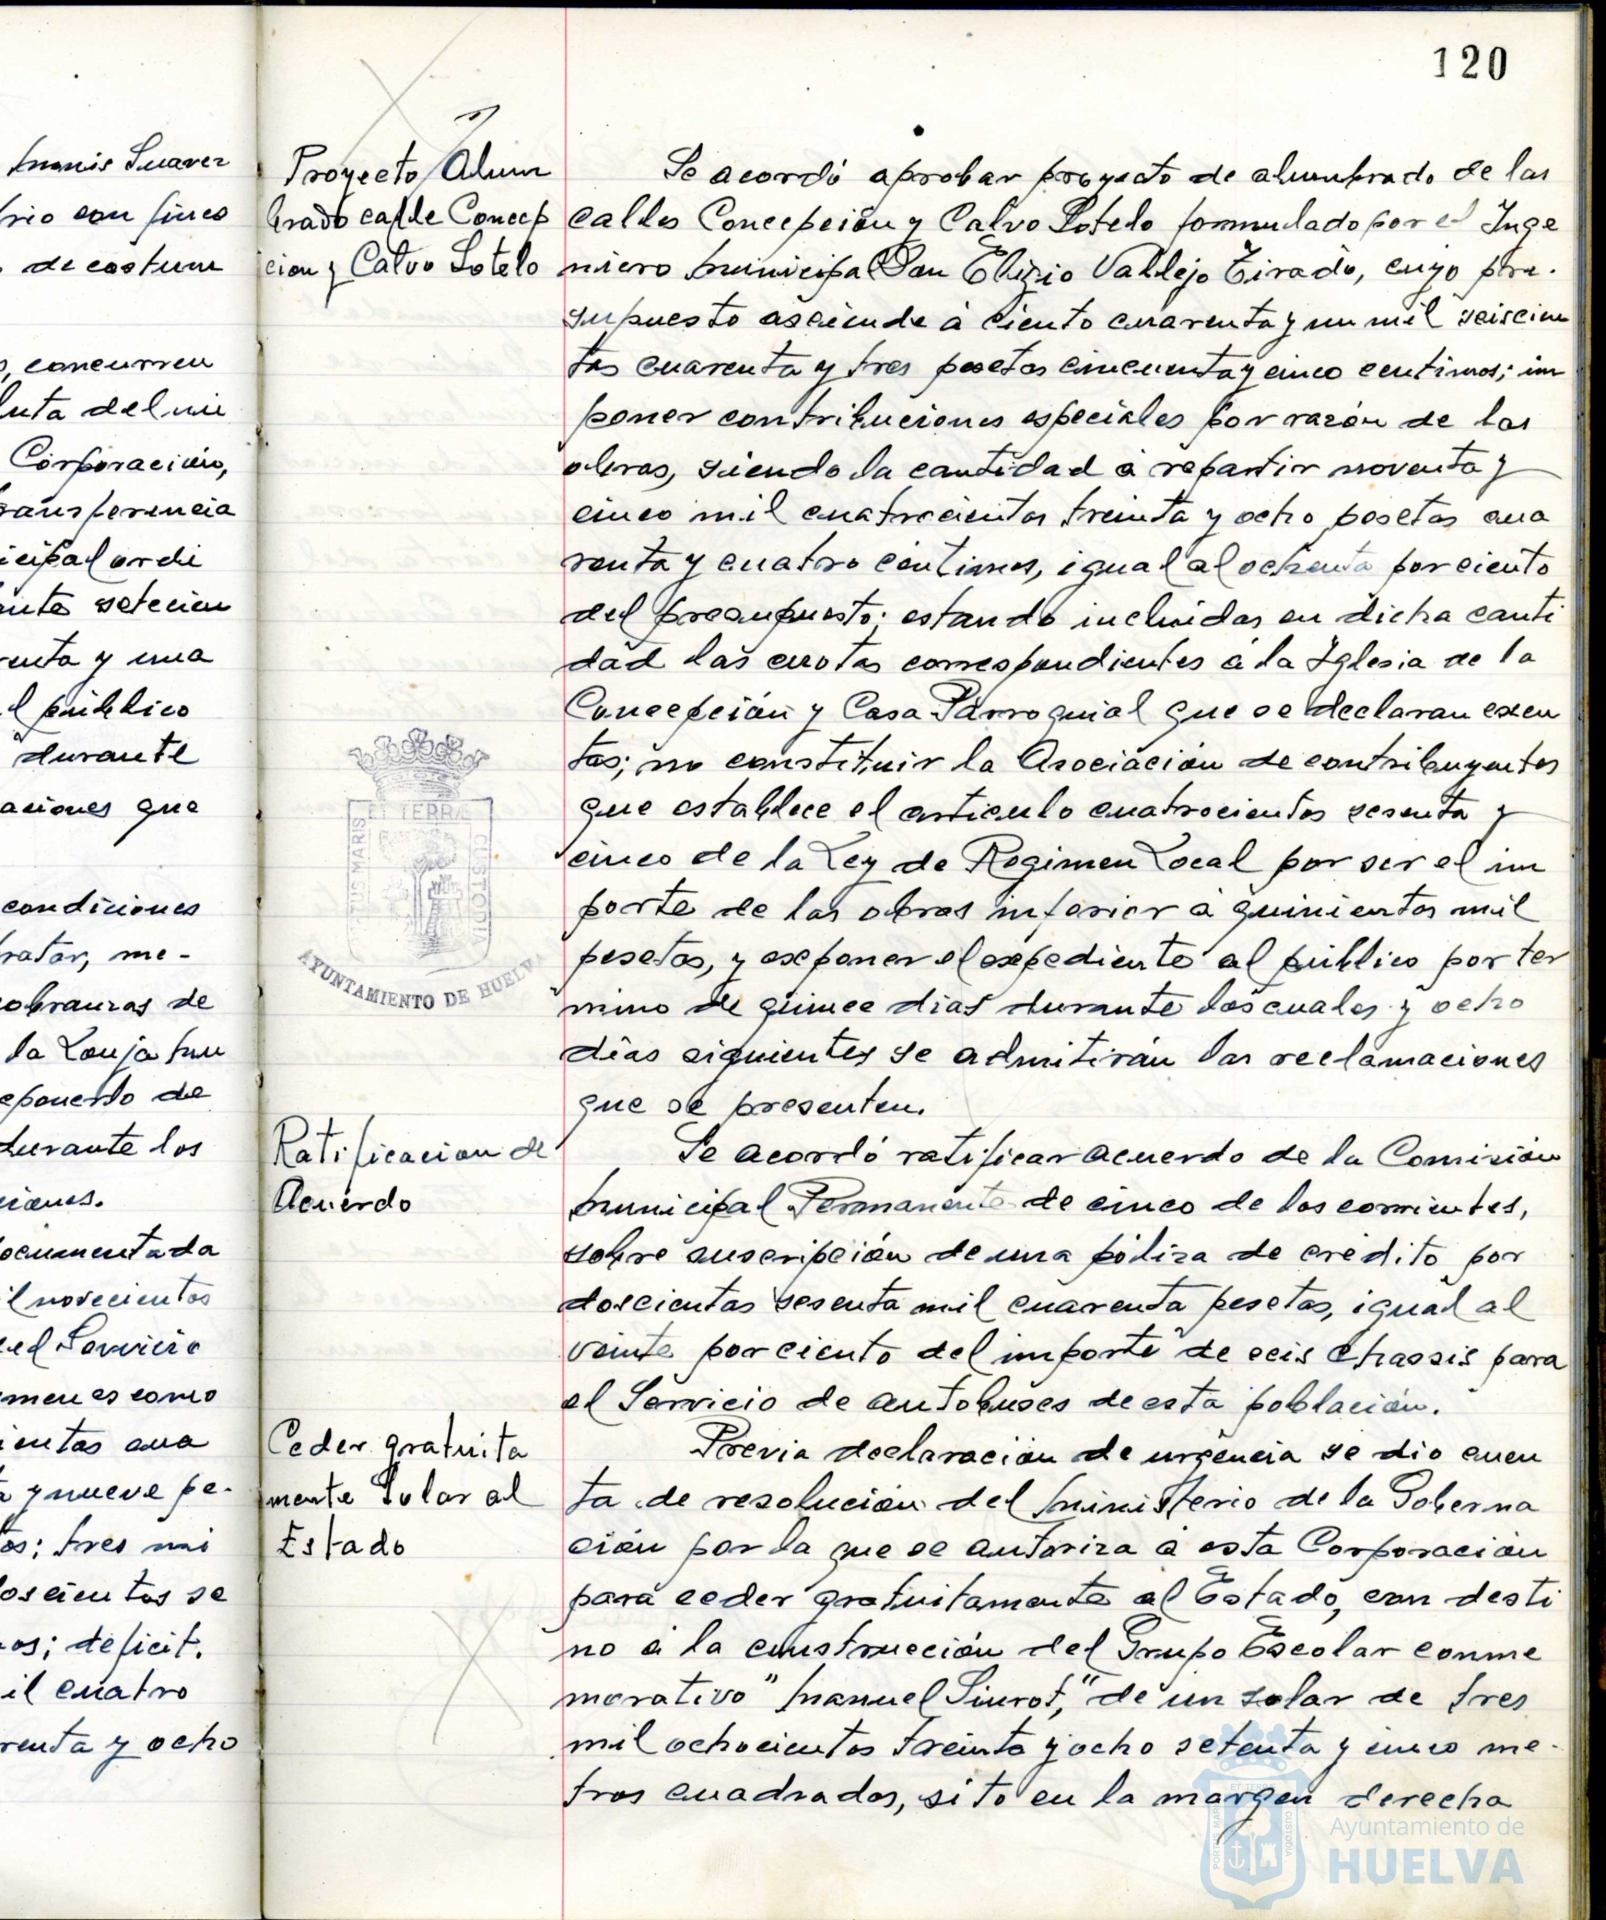 120
Suarez
rio con fines
de costum
concurren
Corporación,
ransferencia
icipal ordi
setecien
enta y una
l público
durante
aciones que
condiciones
ratar, me-
cobranzas de
la Lonja Mu
de
durante los
ciones.
ocumentada
il novecientos
el Servicio
men es como
ientas cua
y nueve pe-
tos; tres mi
oscientos se
os; deficit.
il cuatro
renta y ocho
Proyecto Alum
brado calle Concep
cion y Calvo Sotelo
Se acordó aprobar proyecto de alumbrado de las
calles Concepción y Calvo Sotelo formulado por el Inge
niero Municipal Don Eligio Vallejo Tirado, cuyo pre-
supuesto asciende á ciento cuarenta y un mil seiscien
tas cuarenta y tres pesetas cincuenta y cinco centimos; im
poner contribuciones especiales por razón de las
obras, siendo la cantidad á repartir noventa y
cinco mil cuatrocientas treinta y ocho pesetas cua
renta y cuatro céntimos, igual al ochenta por ciento
del presupuesto; estando incluidas en dicha canti
dad las cuotas correspondientes á la Iglesia de la
Concepción y Casa Parroquial que se declaran exen
tas; no constituir la Asociación de contribuyentes
que establece el articulo cuatrocientos sesenta y
cinco de la Ley de Regimen Local por ser el im
porte de las obras inferior á quinientas mil
pesetas, y exponer el expediente al público por ter
mino de quince dias durante los cuales y ocho
días siguientes se admitirán las reclamaciones
que se presenten.
Ratificacion de
Acuerdo
Se acordó ratificar acuerdo de la Comisión
Municipal Permanente de cinco de los corrientes,
sobre suscripción de una póliza de crédito por
doscientas sesenta mil cuarenta pesetas, igual al
veinte por ciento del importe de seis chassis para
el Servicio de autobuses de esta población.
Ceder gratuita
mente Solar al
Estado
Previa declaración de urgencia se dio cuen
ta de resolución del Ministerio de la Goberna
ción por la que se autoriza á esta Corporación
para ceder gratuitamente al Estado, con desti
no á la construcción del Grupo Escolar conme
morativo "Manuel Siurot," de un solar de tres
mil ochocientos treinta y ocho setenta y cinco me-
tros cuadrados, sito en la margen derecha
ET TERRA
CUSTODIA
AYUNTAMIENTO DE HUELVA
Ayuntamiento de
HUELVA